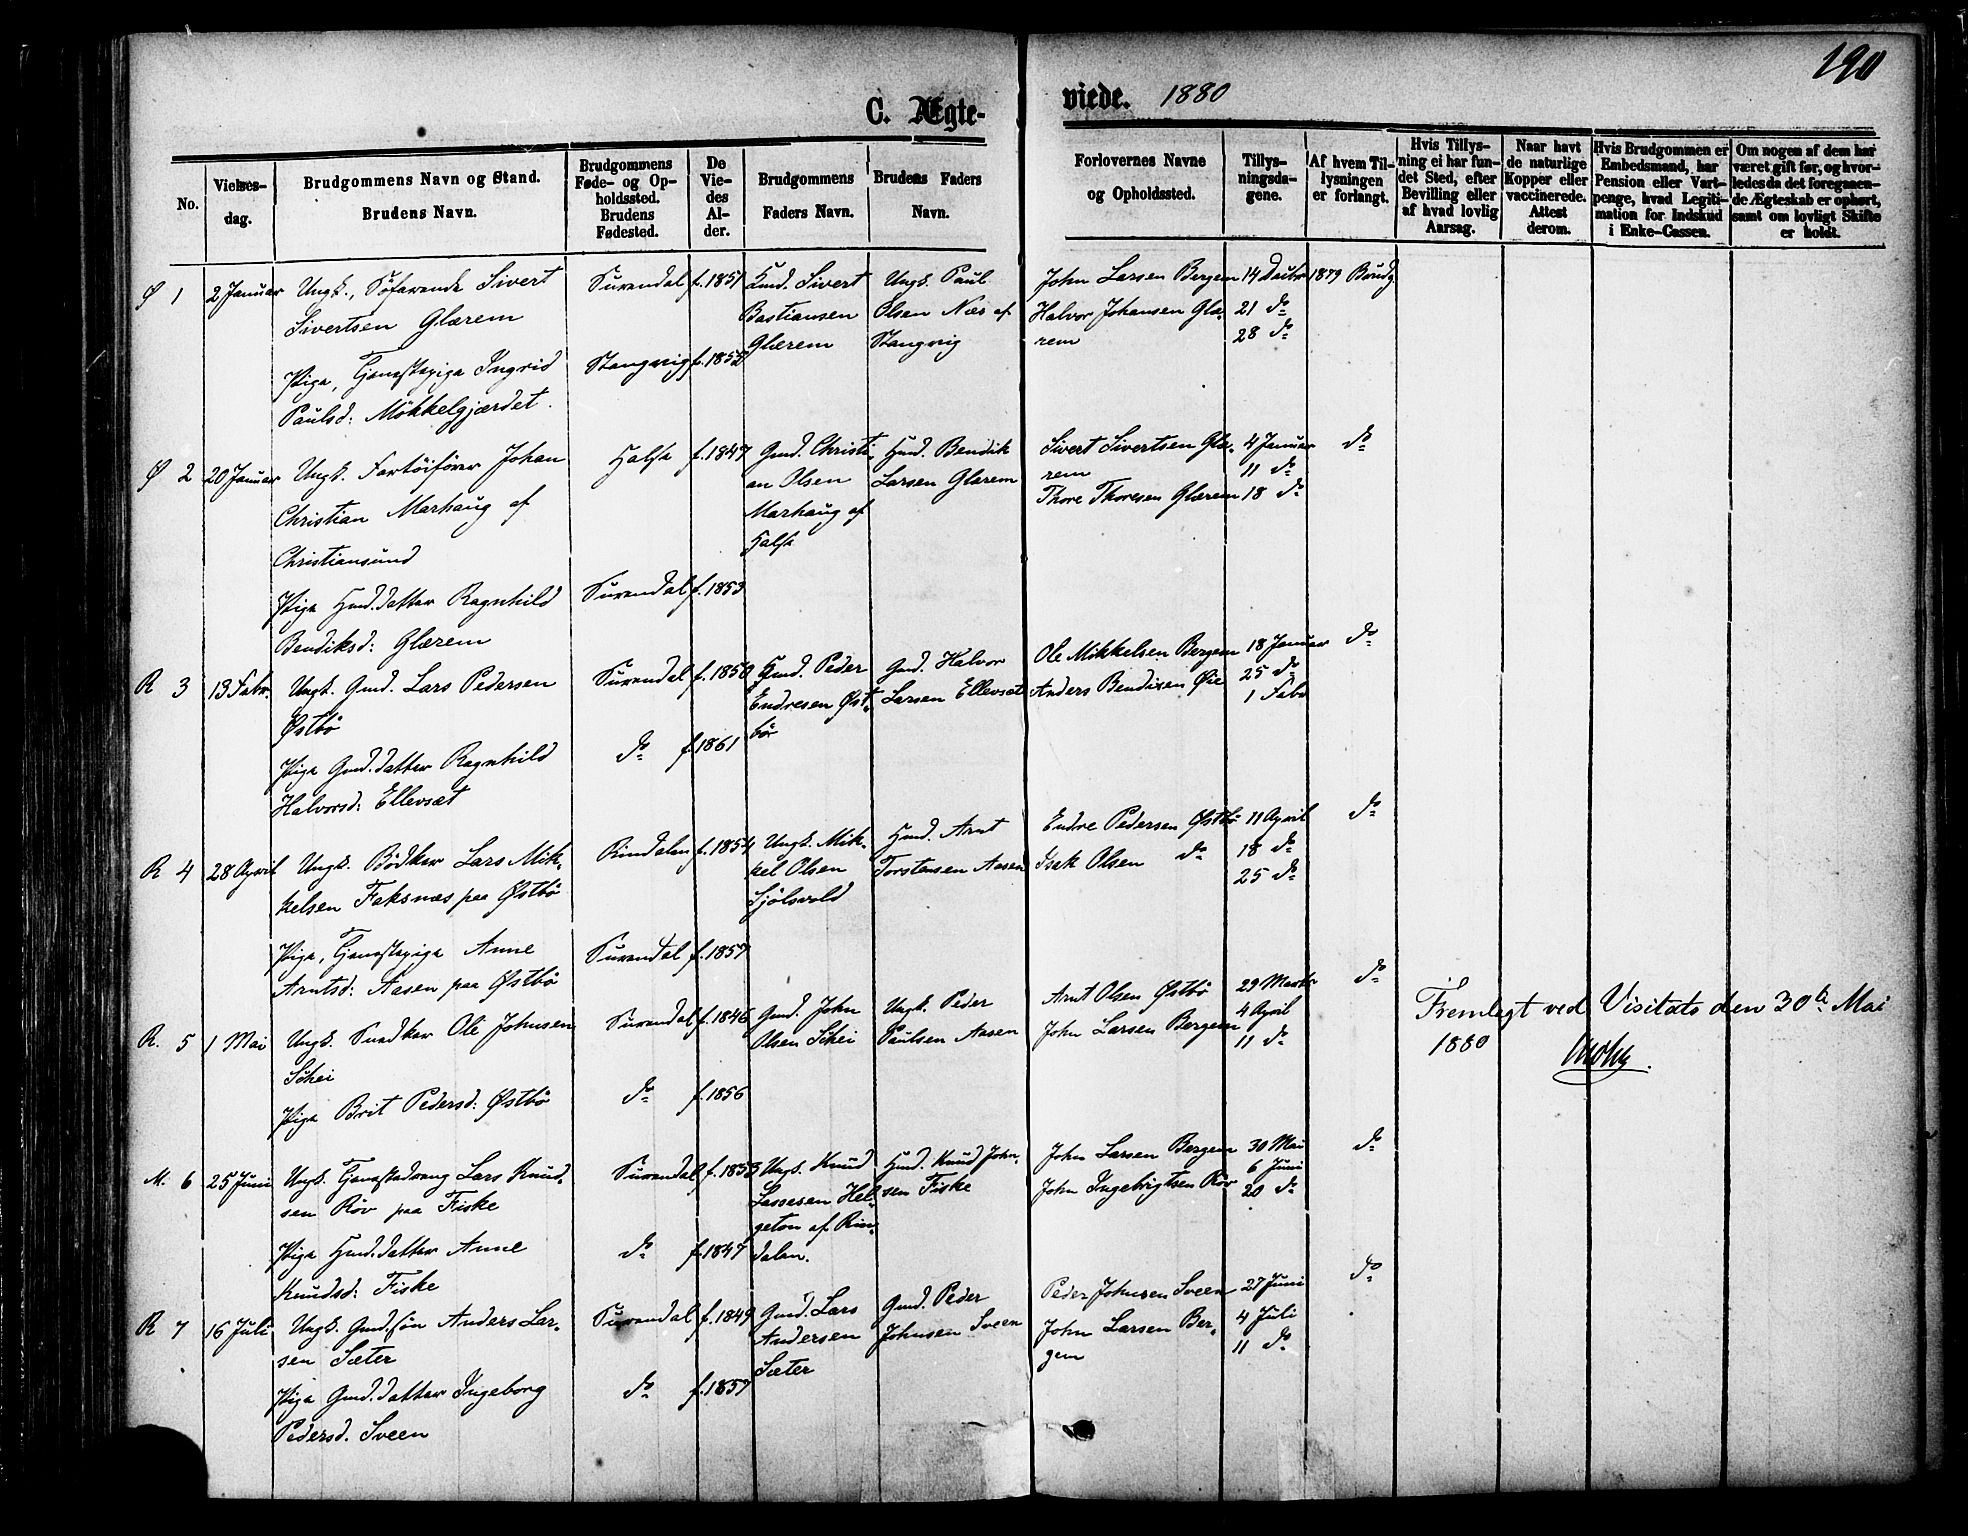 190
C. Ægte-
viede. 1880
No.
Vielses-
dag.
Brudgommens Navn og Stand.
Brudens Navn.
Brudgommens
Føde- og Op-
holdssted.
Brudens
Fødested.
De
Vie-
des
Al-
der.
Brudgommens
Faders Navn.
Brudens Faders
Navn.
Forlovernes Navne
og Opholdssted.
Tillys-
ningsda-
gene.
Af hvem Til-
lysningen
er forlangt.
Hvis Tillys-
ning ei har fun-
det Sted, efter
Bevilling eller
af hvad lovlig
Aarsag.
Naar havt
de naturlige
Kopper eller
vaccinerede.
Attest
derom.
Hvis Brudgommen er
Embedsmand, har
Pension eller Vart-
penge, hvad Legiti-
mation for Indskud
i Enke-Cassen.
Om nogen af dem har
været gift før, og hvor-
ledes da det foregaaen-
de Ægteskab er ophørt,
samt om lovligt Skifte
er holdt.
Ø 1
2 Januar
Ungk., Søfarende Sivert
Sivertsen Glærem
Pige, Tjenestepige Ingrid
Paulsd: Møkkelgjærdet.
Surendal
Stangvig
f. 1851
f. 1852
Hmd. Sivert
Bastiansen
Glærem
Ungk. Paul
Olsen Næs af
Stangvig
John Larsen Bergem
Halvor Johansen Glæ-
rem
14 Decbr 1879
21 do
28 do
Brudg.
Ø 2
20 Januar
Ungk. Fartøifører Johan
Christian Marhaug af
Christiansund
Pige Hmd. datter Ragnhild
Bendiksd: Glærem
Halsa
Surendal
f. 1847
f. 1853
Gmd. Christi-
an Olsen
Marhaug af
Halsa
Hmd. Bendik
Larsen Glærem
Sivert Sivertsen Glæ-
rem
Thore Thoresen Glærem
4 Januar
11 do
18 do
do
R 3
13 Febr.
Ungk. Gmd. Lars Pedersen
Østbø
Pige Gmd. datter Ragnhild
Halvorsd: Ellevsæt
Surendal
do
f. 1850
f. 1861
Gmd. Peder
Endresen Øst-
bø
Gmd. Halvor
Larsen Ellevsæt
Ole Mikkelsen Bergem
Anders Bendixen Øie
18 Januar
25 do
1 Febr
do
R 4
28 April
Ungk. Bødker Lars Mik-
kelsen Faksnæs paa Østbø
Pige, Tjenestepige Anne
Arntsd: Aasen paa Østbø
Rindalen
Surendal
f. 1854
f. 1857
Ungk. Mik-
kel Olsen
Sjølsvold
Hmd. Arnt
Torstensen Aasen
Endre Pedersen Østbø
Isak Olsen do
11 April
18 do
25 do
do
R. 5
1 Mai
Ungk. Snedker Ole Johnsen
Schei
Pige Brit Pedersd: Østbø
Surendal
do
f. 1846
f. 1856
Gmd. John
Olsen Schei
Ungk. Peder
Paulsen Aasen
Arnt Olsen Østbø
John Larsen Bergem
29 Marts
4 April
11 do
do
Fremlagt ved Visitats den 30te Mai
1880
M. 6
25 Juni
Ungk. Tjenestedreng Lars Knud-
sen Røv paa Fiske
Pige Hmd. datter Anne
Knudsd: Fiske
Surendal
do
f. 1853
f. 1847
Ungk. Knud
Lassesen Hel-
geton af Rin-
dalen.
Hmd. Knud John-
sen Fiske
John Larsen Bergem
John Ingebrigtsen Røv
30 Mai
6 Juni
20 do
do
R 7
16 Juli
Ungk. Gmd. søn Anders Lar-
sen Sæter
Pige Gmd. datter Ingeborg
Pedersd. Sveen
Surendal
do
f. 1849
f. 1857
Gmd. Lars
Andersen
Sæter
Gmd. Peder
Johnsen Sveen
Peder Johnsen Sveen
John Larsen Ber-
gem
27 Juni
4 Juli
11 do
do